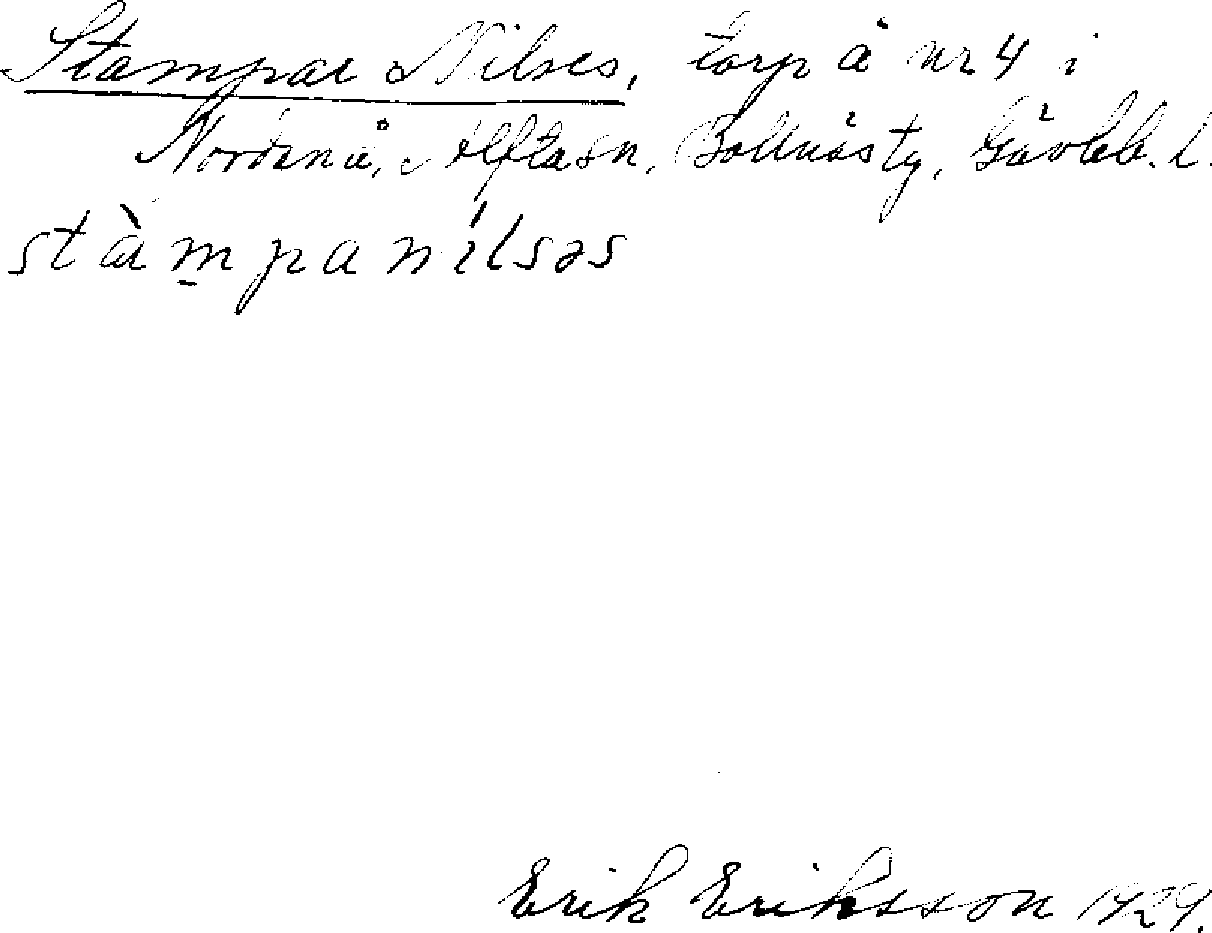 Stampar Nilses, torp å nr 4 i
Nordanå, Alfta sn, Bollnäs tg, Gävleb. l.
stàm̱panílsəs
Erik Eriksson 1929.